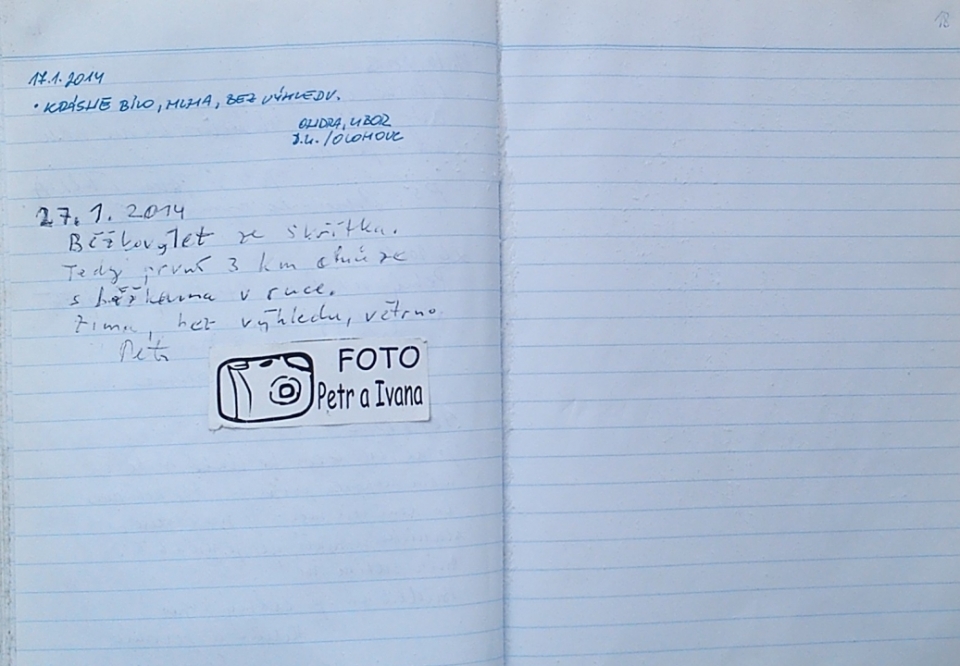 18
17.1.2014
• KRÁSNĚ BÍLO, MLHA, BEZ VÝHLEDU.
ONDRA, LIBOR
/OLOMOUC
27.1.2014
Běžkovýlet ze Skřítka.
Tedy první 3 km chůze
s běžkama v ruce.
Zima, bez výhledu, větrno
Petr
FOTO
Petr a Ivana